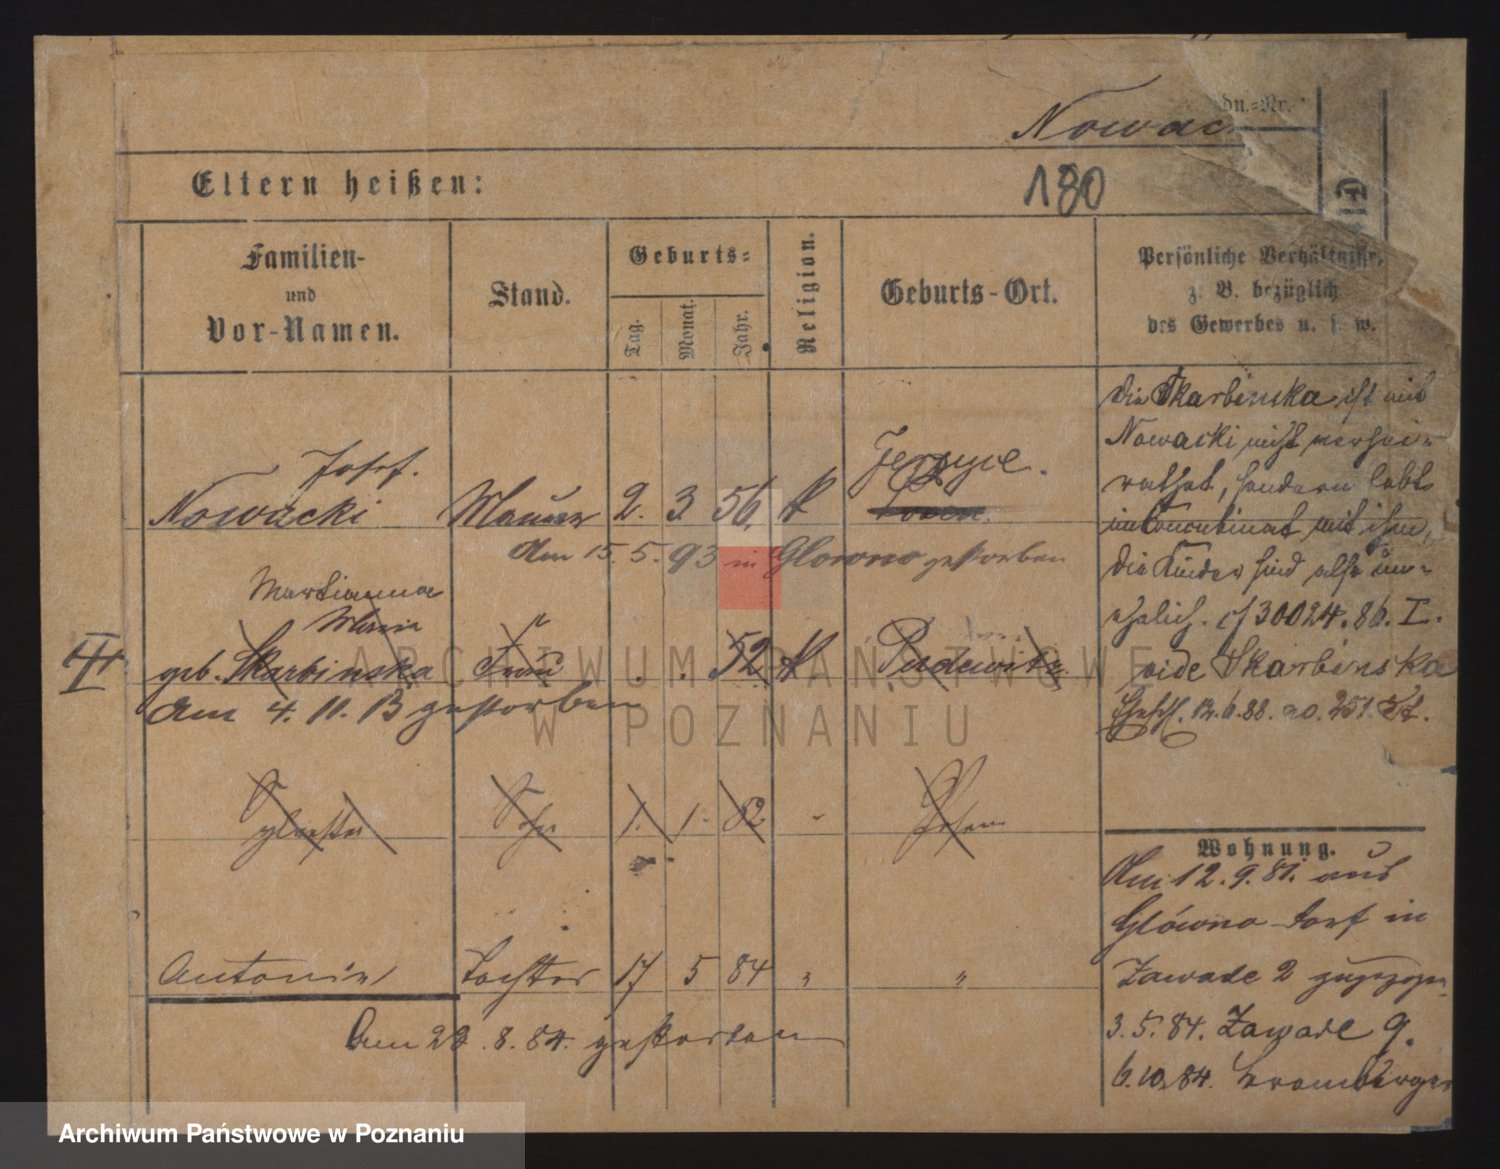 Nowac
dn.-Nr.
Eltern heißen:
180
Familien-
und
Vor-Namen.
Stand.
Geburts-
Tag.
Monat.
Jahr.
Religion.
Geburts-Ort.
Persönliche Verhältnisse,
z. B. bezüglich
des Gewerbes u. s. w.
Josef.
Nowacki Maurer 2. 3. 56. k
Posen.
Am 15. 5. 93 in Glowno gestorben
Martianna
Maria
III geb. Skarbinska Frau 52 k Pudewitz
Am 4. 11. 13 gestorben
Sylvester Sohn 1. 1. 82 " Posen
Antonie Tochter 17 5 84 " "
Am 22. 8. 84. gestorben
die Skarbinska ist mit
Nowacki nicht verhei-
rathet, sondern lebt
im Concubinat mit ihm,
die Kinder sind also un-
ehelich. cf 30024. 86. I.
vide Skarbinska
12. 6. 88. no. 251.
Wohnung.
Am 12. 9. 81. aus
Glówno Dorf in
Zawade 2 zugezogen
3. 5. 84. Zawade 9.
6. 10. 84. Bromberger
ARCHIWUM PAŃSTWOWE
W POZNANIU
Archiwum Państwowe w Poznaniu